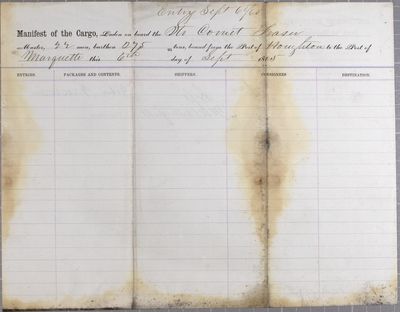 Entry Sept 6/65
Manifest of the Cargo, Laden on board the Str Comet Fraser
Master, 22 men, burthen 278 tons, bound from the Port of Houghton to the Port of
Marquette this 6th day of Sept 186
ENTRIES. PACKAGES AND CONTENTS. SHIPPERS. CONSIGNEES DESTINATION.